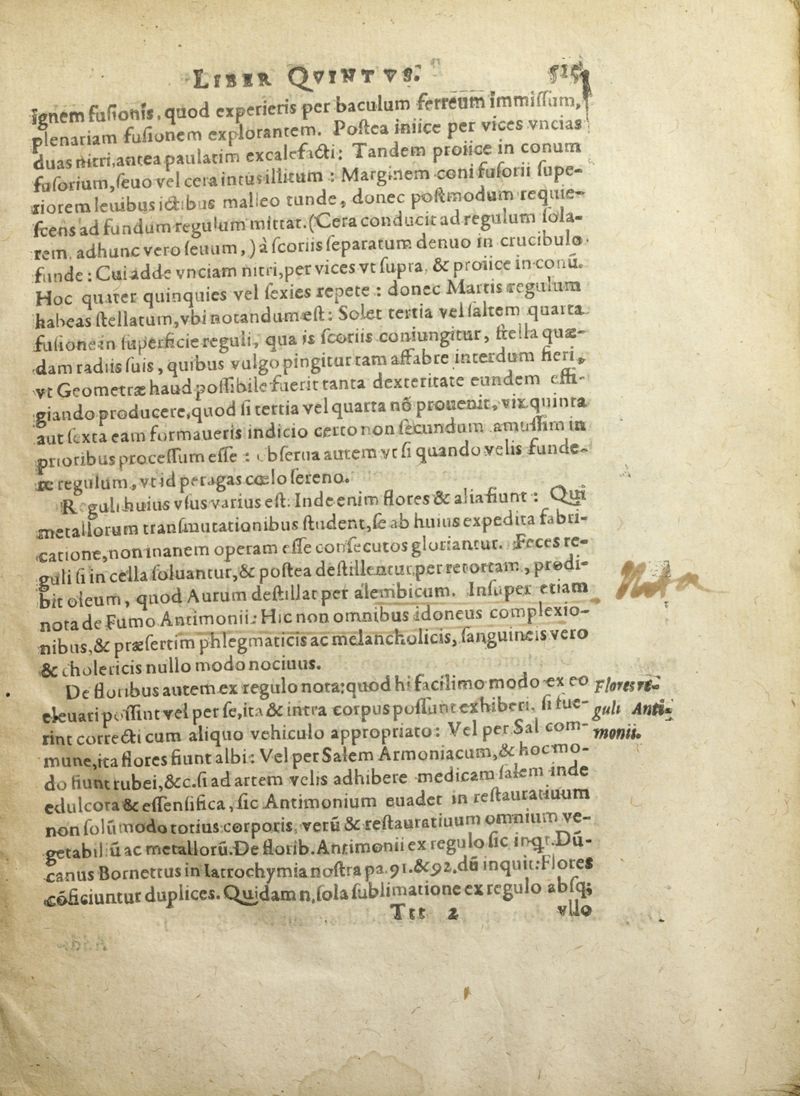 LIBER QVINTVS. 515
ignem fuſionis, quod experieris per baculum ferreum immiſſum,
plenariam fuſionem explorantem. Poſtea iniice per vices vncias
duas nitri, antea paulatim excalefacti: Tandem proiice in conum
fuſorium, ſeuo vel cera intus illitum: Marginem coni fuſorii ſupe-
riorem leuibus ictibus malleo tunde, donec poſtmodum requie-
ſcens ad fundum regulum mittat. (Cera conducit ad regulum ſola-
rem, ad hunc vero ſeuum,) à ſcoriis ſeparatum denuo in crucibulo
funde: Cui adde vnciam nitri, per vices vt ſupra, & proiice in conū.
Hoc quater quinquies vel ſexies repete: donec Martis regulum
habeas ſtellatum, vbi notandum eſt: Solet tertia vel ſaltem quarta
fuſione in ſuperficie reguli, qua is ſcoriis coniungitur, ſtella quæ-
dam radiis ſuis, quibus vulgo pingitur tam affabre interdum fieri,
vt Geometræ haud poſſibile fuerit tanta dexteritate eundem effi-
giando producere, quod ſi tertia vel quarta nō prouenit, vix quinta
aut ſexta eam formaueris indicio certo non ſecundum amuſſim in
prioribus proceſſum eſſe: obſerua autem vt ſi quando velis funde-
re regulum, vt id peragas cœlo ſereno.
Reguli huius vſus varius eſt. Inde enim flores & alia fiunt: Qui
metallorum tranſmutationibus ſtudent, ſe ab huius expedita fabri-
catione, non inanem operam eſſe conſecutos gloriantur. Feces re-
guli ſi in cella ſoluantur, & poſtea deſtillentur per retortam, prodi-
bit oleum, quod Aurum deſtillat per alembicum. Inſuper etiam
nota de Fumo Antimonii: Hic non omnibus idoneus complexio-
nibus, & præſertim phlegmaticis ac melancholicis, ſanguineis vero
& cholericis nullo modo nociuus.
Nota
De floribus autem ex regulo nota; quod hi facilimo modo ex eo
eleuari poſſint vel per ſe, ita & intra corpus poſſunt exhiberi, ſi fue-
rint correcti cum aliquo vehiculo appropriato: Vel per Sal com-
mune, ita flores fiunt albi: Vel per Salem Armoniacum, & hoc mo-
do fiunt rubei, &c. ſi ad artem velis adhibere medicam ſalem inde
edulcora & eſſenſifica, ſic Antimonium euadet in reſtauratiuum
non ſolū modo totius corporis, verū & reſtauratiuum omnium ve-
getabiliū ac metallorū. De florib. Antimonii ex regulo ſic inqt. Du-
canus Bornettus in Iatrochymia noſtra pa. 91. & 92. dū inquit: Flores
cōficiuntur duplices. Quidam n, ſola ſublimatione ex regulo abſq;
Flores re-
guli Anti-
monii.
Ttt 2 vllo